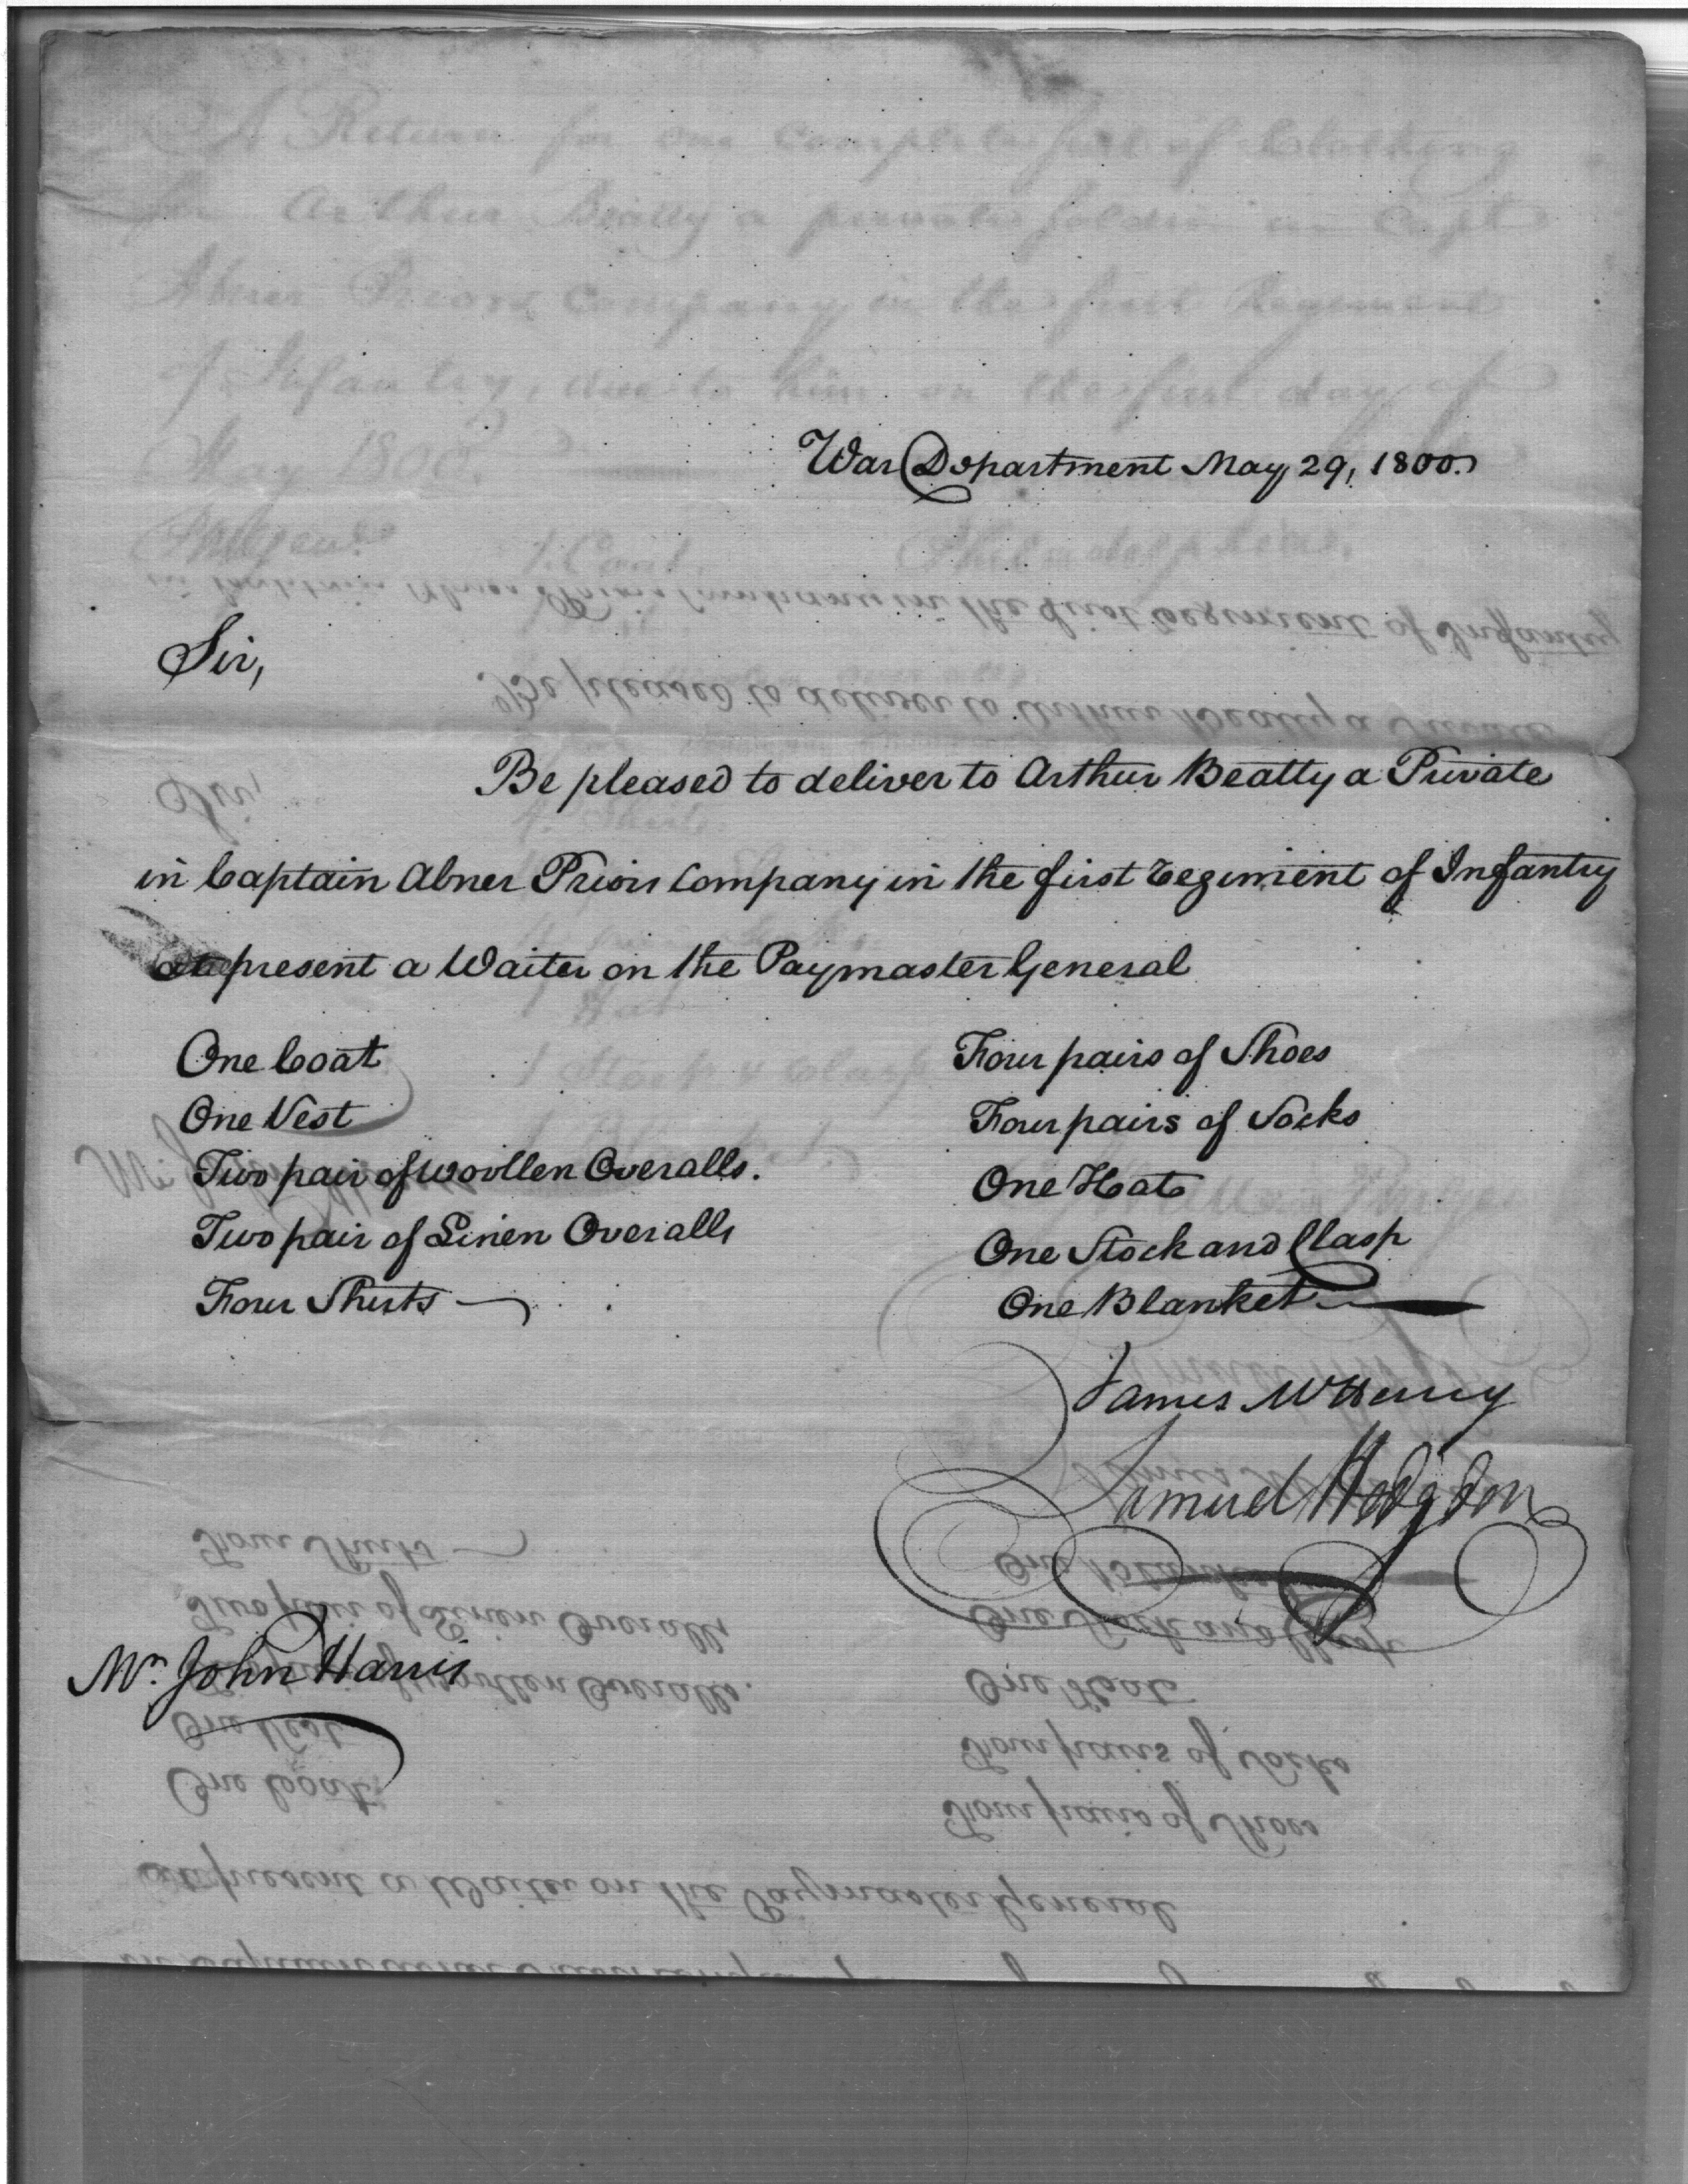 War Department May 29, 1800.
Sir,
Be pleased to deliver to Arthur Beatty a Private
in Captain Abner Priors Company in the first regiment of Infantry
at present a Waiter on the Paymaster General
One Coat
One Vest
Two pair of woollen Overalls.
Two pair of Linen Overalls
Four Shirts
Four pairs of Shoes
Four pairs of Socks
One Hat
One Stock and Clasp
One Blanket
James McHenry
Samuel Hodgdon
Mr. John Harris